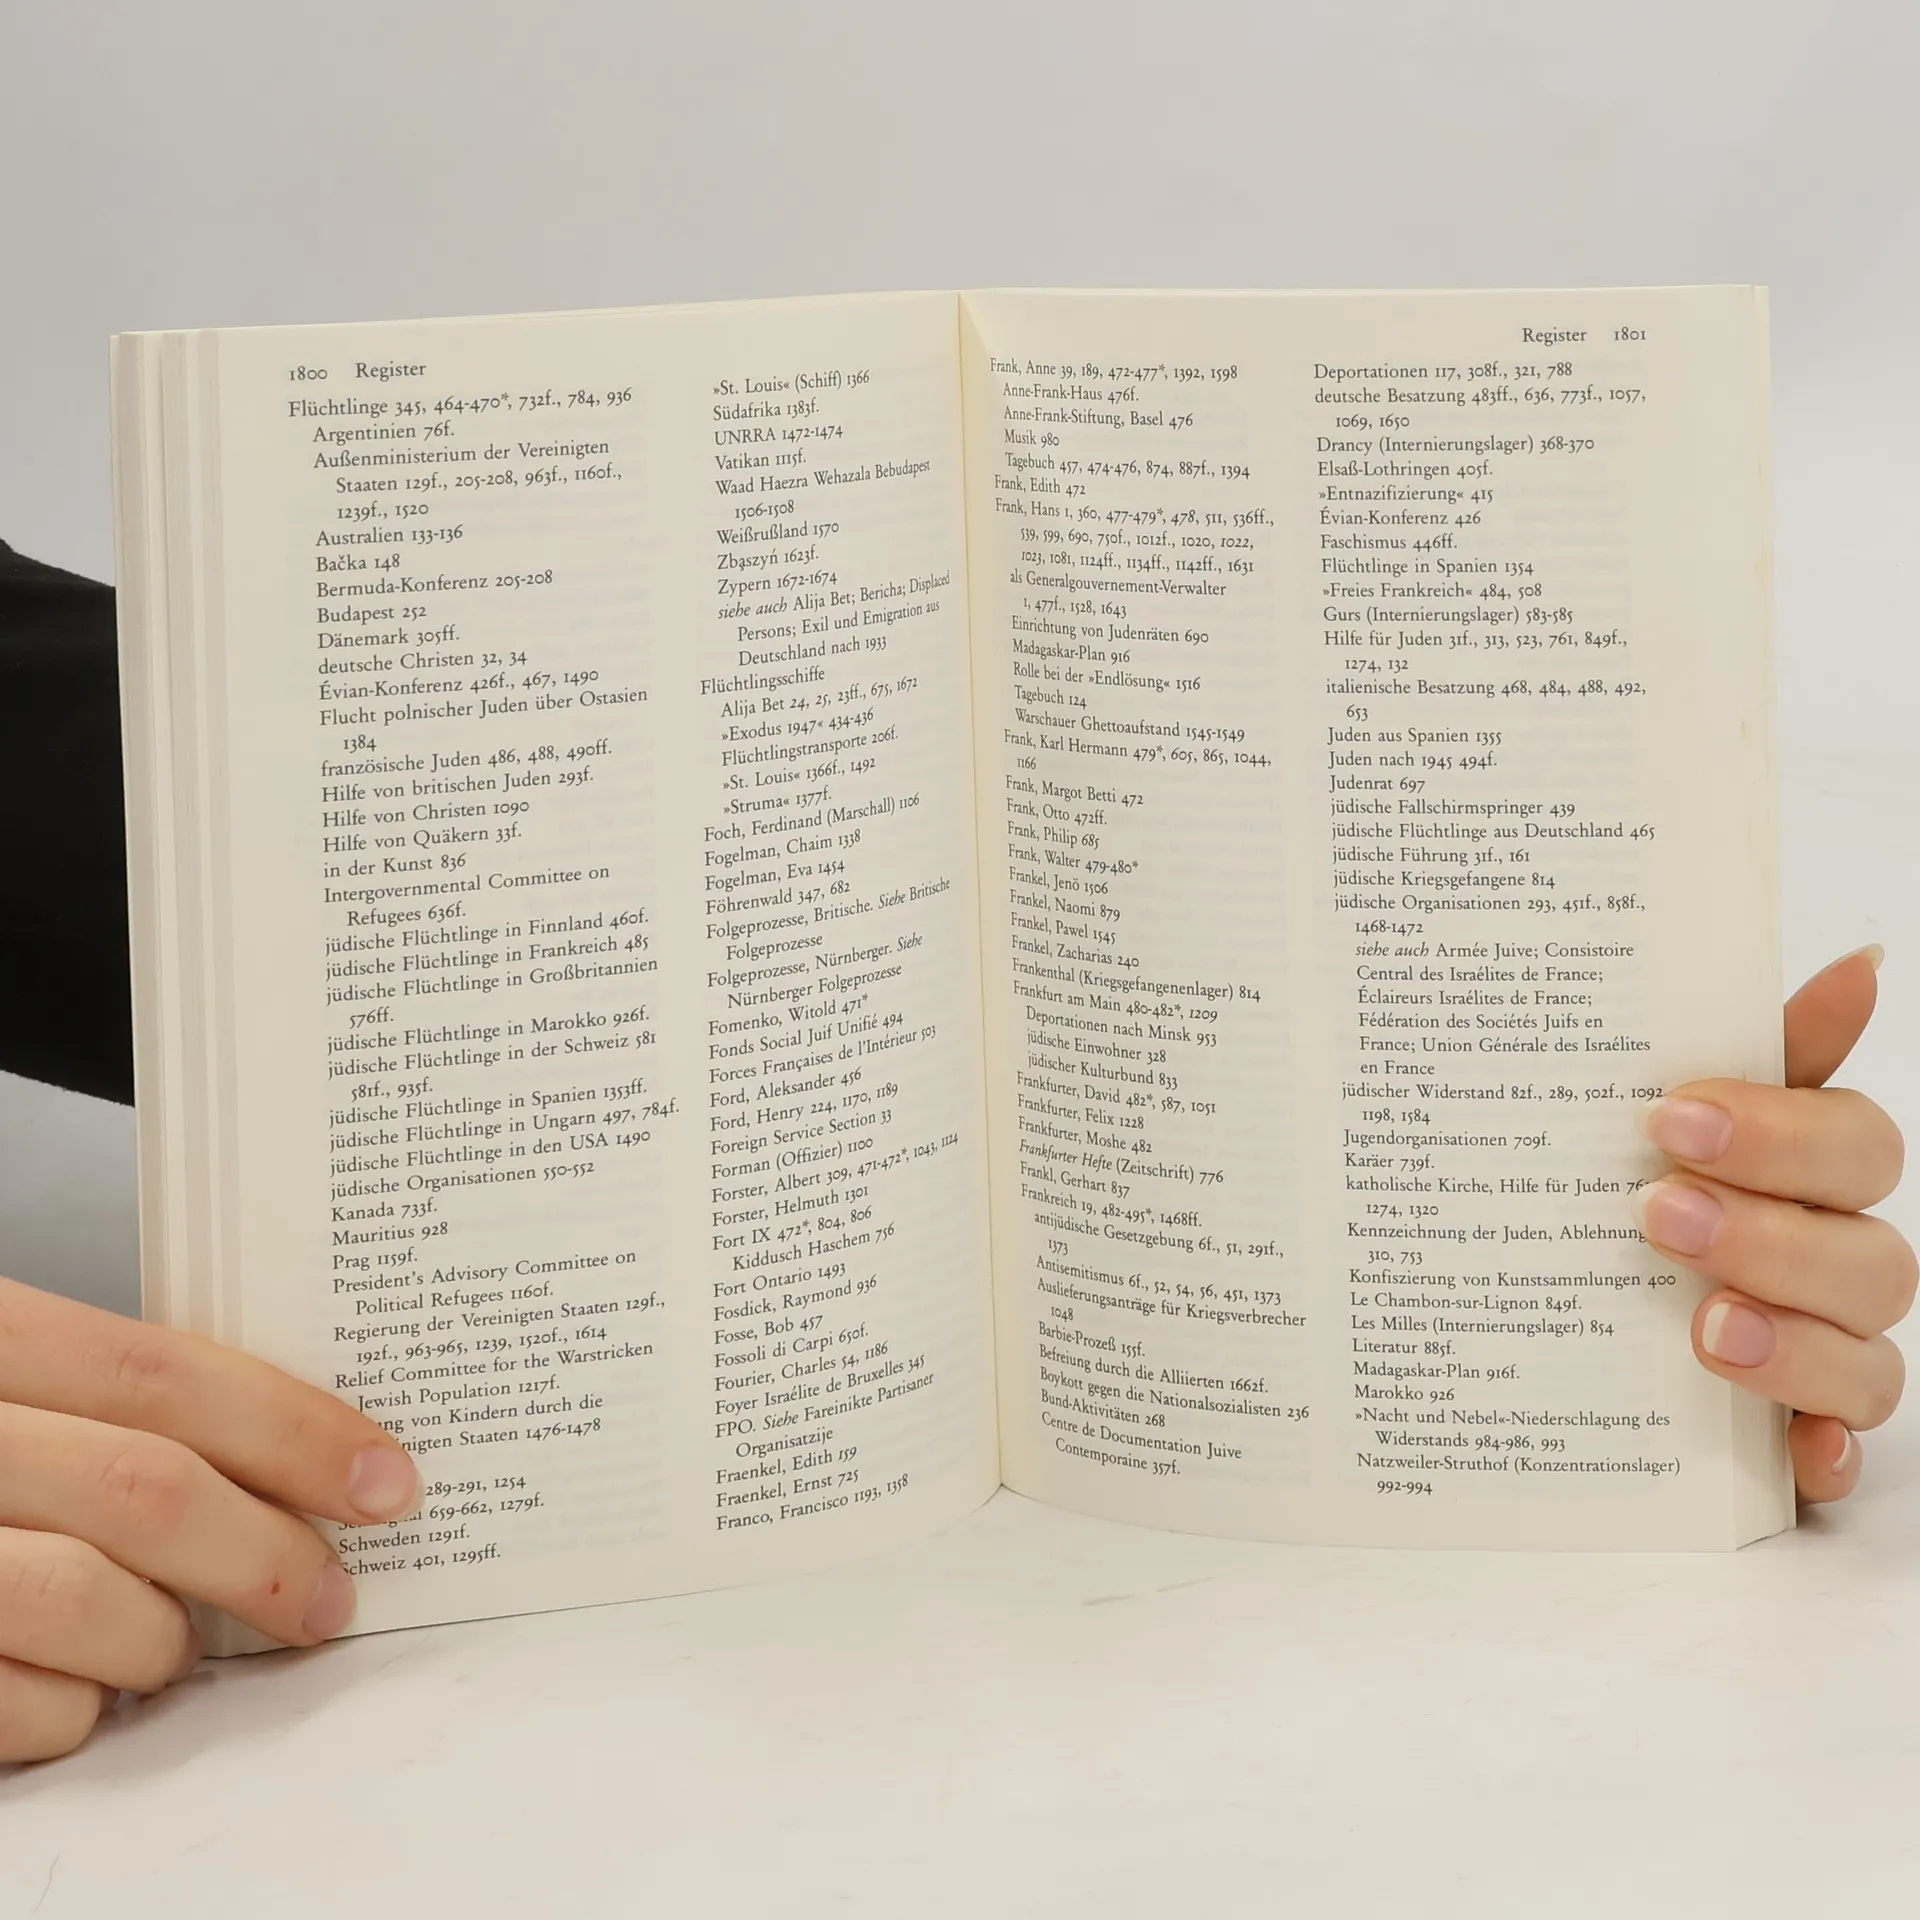 1800 Register
Flüchtlinge 345, 464-470*, 732f., 784, 936
Argentinien 76f.
Außenministerium der Vereinigten
Staaten 129f., 205-208, 963f., 1160f.,
1239f., 1520
Australien 133-136
Bačka 148
Bermuda-Konferenz 205-208
Budapest 252
Dänemark 305ff.
deutsche Christen 32, 34
Évian-Konferenz 426f., 467, 1490
Flucht polnischer Juden über Ostasien
1384
französische Juden 486, 488, 490ff.
Hilfe von britischen Juden 293f.
Hilfe von Christen 1090
Hilfe von Quäkern 33f.
in der Kunst 836
Intergovernmental Committee on
Refugees 636f.
jüdische Flüchtlinge in Finnland 460f.
jüdische Flüchtlinge in Frankreich 485
jüdische Flüchtlinge in Großbritannien
576ff.
jüdische Flüchtlinge in Marokko 926f.
jüdische Flüchtlinge in der Schweiz 581
581f., 935f.
jüdische Flüchtlinge in Spanien 1353ff.
jüdische Flüchtlinge in Ungarn 497, 784f.
jüdische Flüchtlinge in den USA 1490
jüdische Organisationen 550-552
Kanada 733f.
Mauritius 928
Prag 1159f.
President's Advisory Committee on
Political Refugees 1160f.
Regierung der Vereinigten Staaten 129f.,
192f., 963-965, 1239, 1520f., 1614
Relief Committee for the Warstricken
Jewish Population 1217f.
von Kindern durch die
Staaten 1476-1478
289-291, 1254
659-662, 1279f.
Schweden 1291f.
Schweiz 401, 1295ff.
»St. Louis« (Schiff) 1366
Südafrika 1383f.
UNRRA 1472-1474
Vatikan 1115f.
Waad Haezra Wehazala Bebudapest
1506-1508
Weißrußland 1570
Zbąszyń 1623f.
Zypern 1672-1674
siehe auch Alija Bet; Bericha; Displaced
Persons; Exil und Emigration aus
Deutschland nach 1933
Flüchtlingsschiffe
Alija Bet 24, 25, 23ff., 675, 1672
»Exodus 1947« 434-436
Flüchtlingstransporte 206f.
»St. Louis« 1366f., 1492
»Struma« 1377f.
Foch, Ferdinand (Marschall) 1106
Fogelman, Chaim 1338
Fogelman, Eva 1454
Föhrenwald 347, 682
Folgeprozesse, Britische. Siehe Britische
Folgeprozesse
Folgeprozesse, Nürnberger. Siehe
Nürnberger Folgeprozesse
Fomenko, Witold 471*
Fonds Social Juif Unifié 494
Forces Françaises de l'Intérieur 503
Ford, Aleksander 456
Ford, Henry 224, 1170, 1189
Foreign Service Section 33
Forman (Offizier) 1100
Forster, Albert 309, 471-472*, 1043, 1124
Forster, Helmuth 1301
Fort IX 472*, 804, 806
Kiddusch Haschem 756
Fort Ontario 1493
Fosdick, Raymond 936
Fosse, Bob 457
Fossoli di Carpi 650f.
Fourier, Charles 54, 1186
Foyer Israélite de Bruxelles 345
FPO. Siehe Fareinikte Partisaner
Organisatzije
Fraenkel, Edith 159
Fraenkel, Ernst 725
Franco, Francisco 1193, 1358
Register 1801
Frank, Anne 39, 189, 472-477*, 1392, 1598
Anne-Frank-Haus 476f.
Anne-Frank-Stiftung, Basel 476
Musik 980
Tagebuch 457, 474-476, 874, 887f., 1394
Frank, Edith 472
Frank, Hans 1, 360, 477-479*, 478, 511, 536ff.,
539, 599, 690, 750f., 1012f., 1020, 1022,
1023, 1081, 1124ff., 1134ff., 1142ff., 1631
als Generalgouvernement-Verwalter
1, 477f., 1528, 1643
Einrichtung von Judenräten 690
Madagaskar-Plan 916
Rolle bei der »Endlösung« 1516
Tagebuch 124
Warschauer Ghettoaufstand 1545-1549
Frank, Karl Hermann 479*, 605, 865, 1044,
1166
Frank, Margot Betti 472
Frank, Otto 472ff.
Frank, Philip 685
Frank, Walter 479-480*
Frankel, Jenö 1506
Frankel, Naomi 879
Frankel, Pawel 1545
Frankel, Zacharias 240
Frankenthal (Kriegsgefangenenlager) 814
Frankfurt am Main 480-482*, 1209
Deportationen nach Minsk 953
jüdische Einwohner 328
jüdischer Kulturbund 833
Frankfurter, David 482*, 587, 1051
Frankfurter, Felix 1228
Frankfurter, Moshe 482
Frankfurter Hefte (Zeitschrift) 776
Frankl, Gerhart 837
Frankreich 19, 482-495*, 1468ff.
antijüdische Gesetzgebung 6f., 51, 291f.,
1373
Antisemitismus 6f., 52, 54, 56, 451, 1373
Auslieferungsanträge für Kriegsverbrecher
1048
Barbie-Prozeß 155f.
Befreiung durch die Alliierten 1662f.
Boykott gegen die Nationalsozialisten 236
Bund-Aktivitäten 268
Centre de Documentation Juive
Contemporaine 357f.
Deportationen 117, 308f., 321, 788
deutsche Besatzung 483ff., 636, 773f., 1057,
1069, 1650
Drancy (Internierungslager) 368-370
Elsaß-Lothringen 405f.
»Entnazifizierung« 415
Évian-Konferenz 426
Faschismus 446ff.
Flüchtlinge in Spanien 1354
»Freies Frankreich« 484, 508
Gurs (Internierungslager) 583-585
Hilfe für Juden 31f., 313, 523, 761, 849f.,
1274, 132
italienische Besatzung 468, 484, 488, 492,
653
Juden aus Spanien 1355
Juden nach 1945 494f.
Judenrat 697
jüdische Fallschirmspringer 439
jüdische Flüchtlinge aus Deutschland 465
jüdische Führung 31f., 161
jüdische Kriegsgefangene 814
jüdische Organisationen 293, 451f., 858f.,
1468-1472
siehe auch Armée Juive; Consistoire
Central des Israélites de France;
Éclaireurs Israélites de France;
Fédération des Sociétés Juifs en
France; Union Générale des Israélites
en France
jüdischer Widerstand 82f., 289, 502f., 1092
1198, 1584
Jugendorganisationen 709f.
Karäer 739f.
katholische Kirche, Hilfe für Juden
1274, 1320
Kennzeichnung der Juden, Ablehnung
310, 753
Konfiszierung von Kunstsammlungen 400
Le Chambon-sur-Lignon 849f.
Les Milles (Internierungslager) 854
Literatur 885f.
Madagaskar-Plan 916f.
Marokko 926
»Nacht und Nebel«-Niederschlagung des
Widerstands 984-986, 993
Natzweiler-Struthof (Konzentrationslager)
992-994